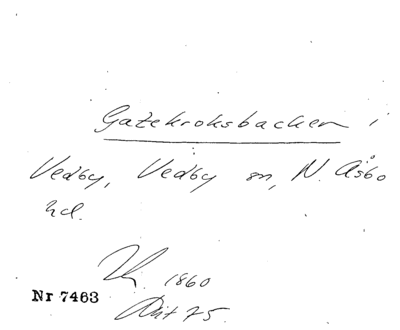 Gatekroksbacken i
Vedby, Vedby sn, N. Åsbo
hd.
1860
Nr 7463
75.